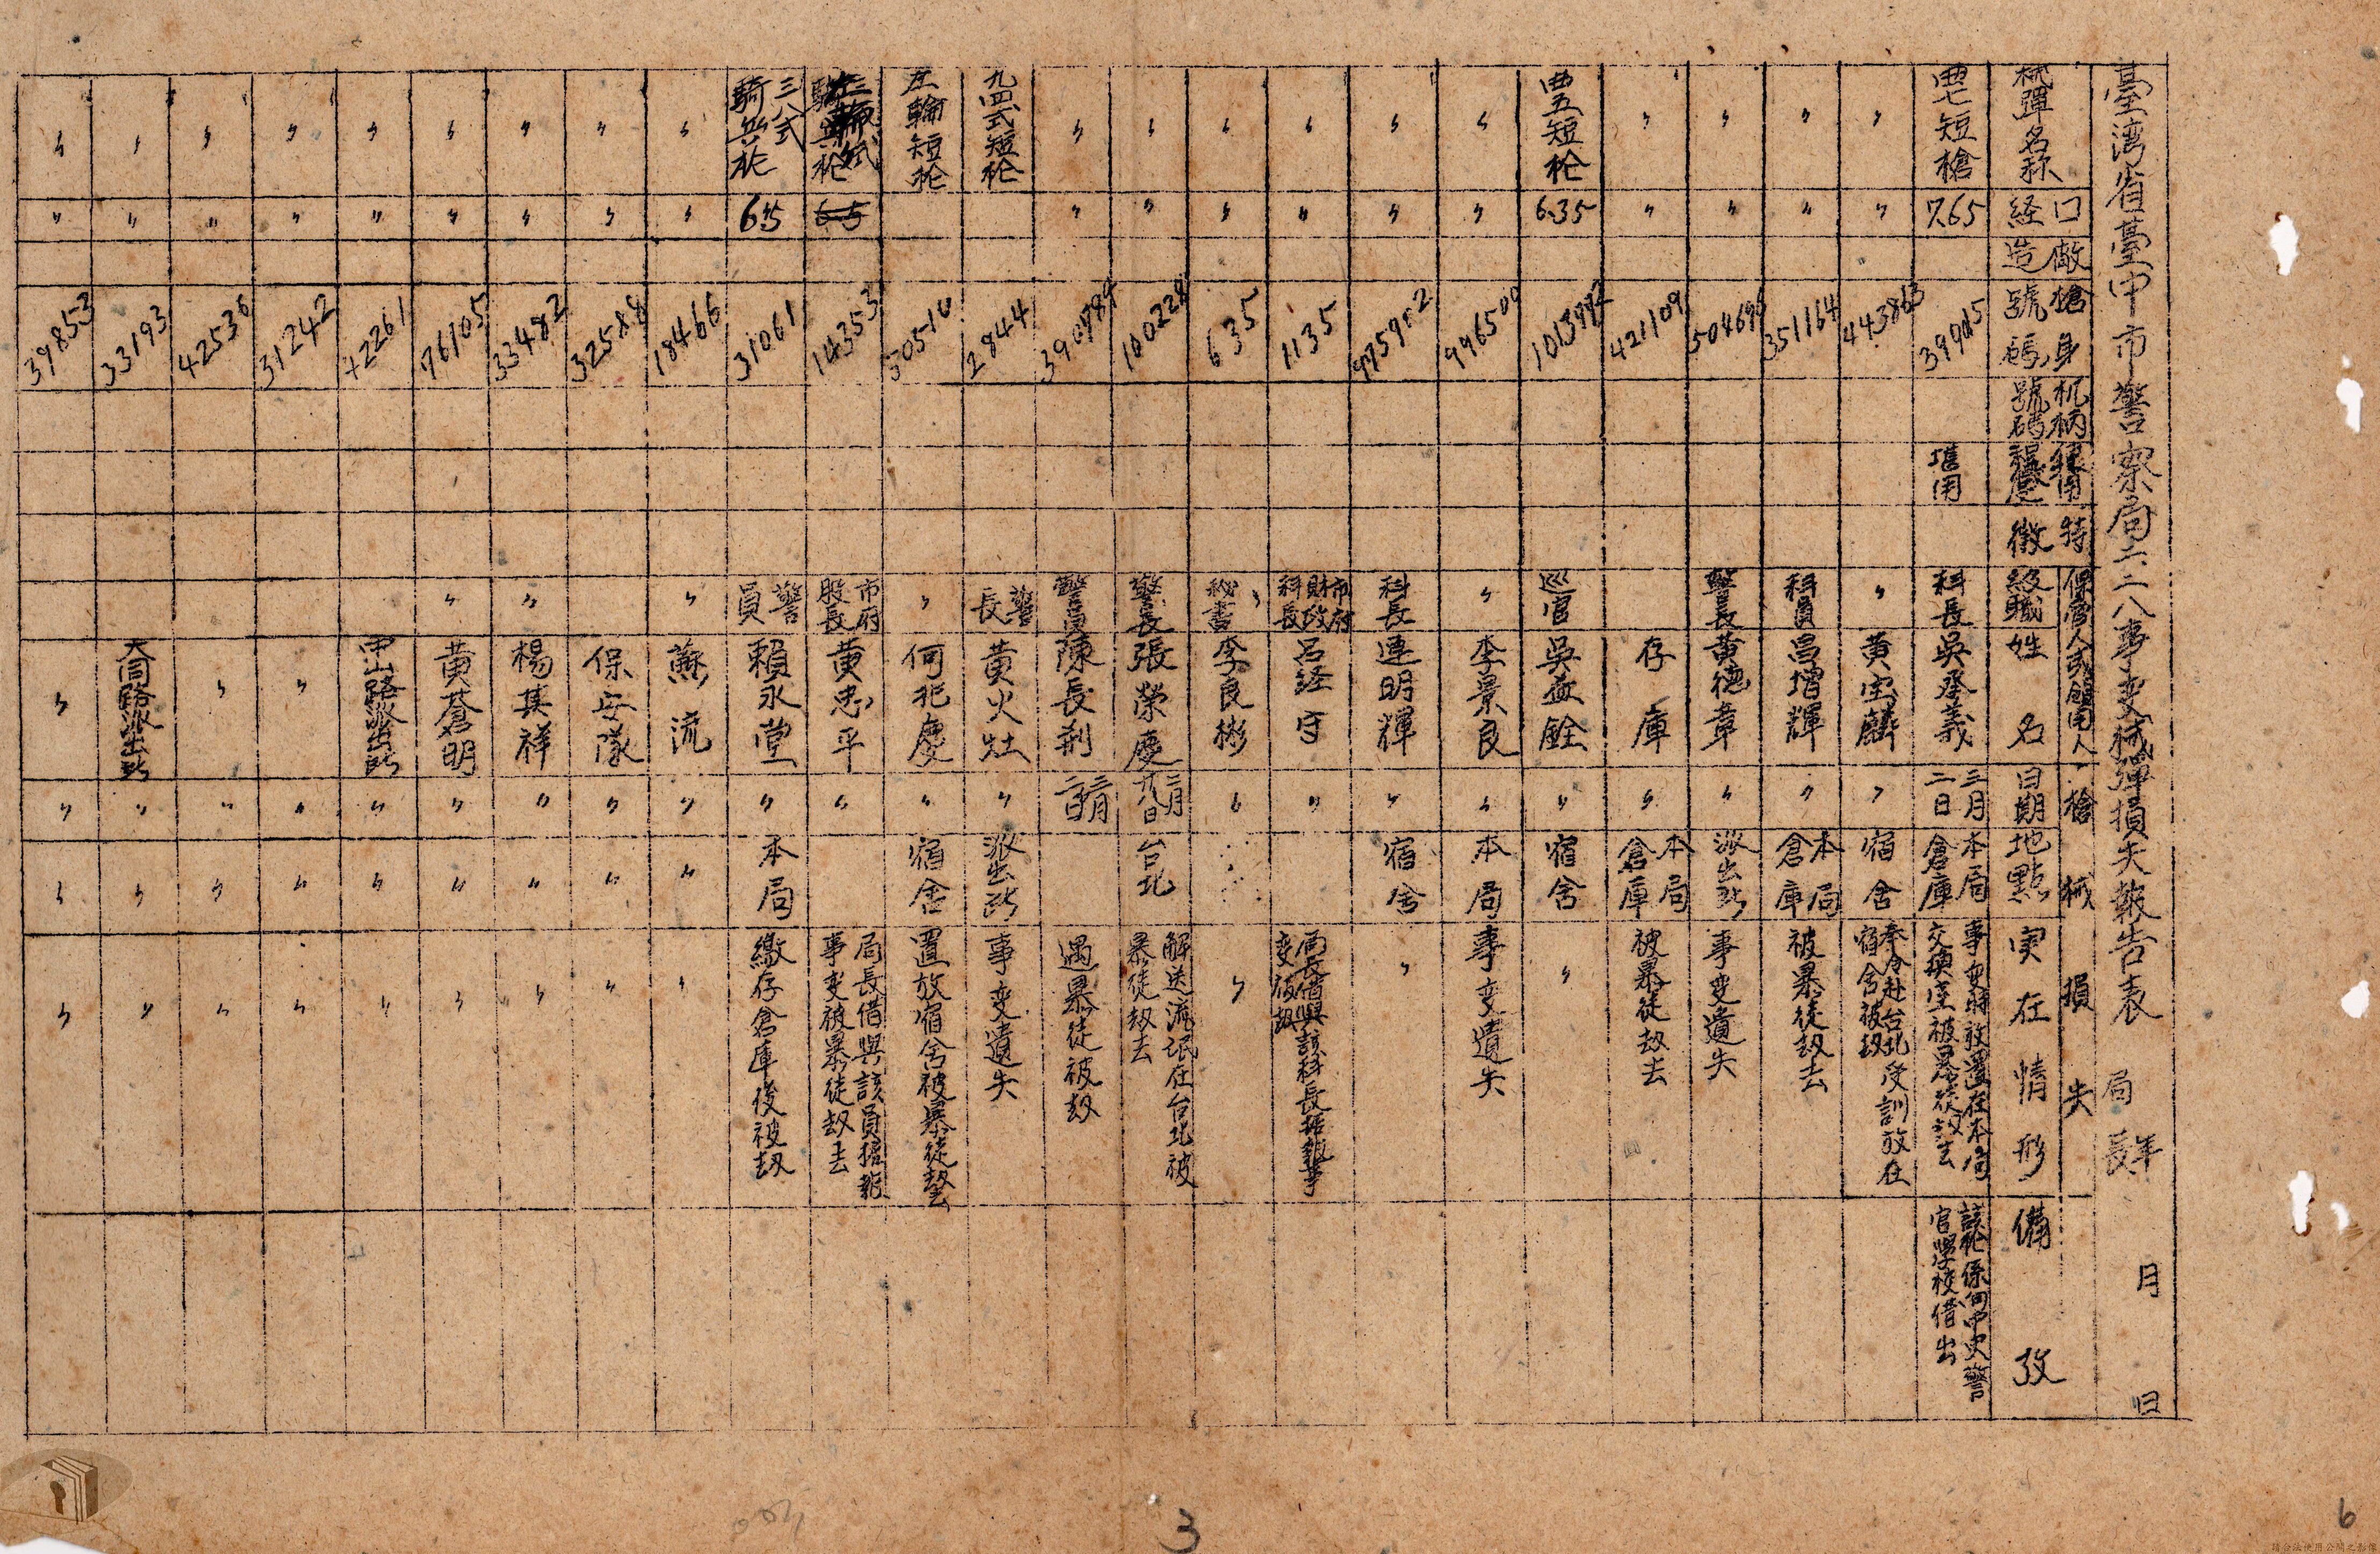 臺湾省臺中市警察局二二八事变械彈損失報告表 局長 年 月 日
械彈名称 口経 廠造 槍身號碼 机柄號碼 堪用 特徵 保管人或領用人 級職 姓名 槍械損失 日期 地點 実在情形 備攷
四七短槍 7.65 堪用 科長 吳丞義 三月二日 本局倉庫 事变時放置在本局交換室被暴徒劫去 該枪係向中央警官學校借出
〃 〃 443863 〃 黄宝麟 〃 宿舍 奉令赴台北受訓放在宿舍被劫
〃 〃 351164 科員 呂增輝 〃 本局倉庫 被暴徒劫去
〃 〃 警長 黄德章 〃 派出所 事变遺失
〃 〃 421109 存庫 〃 本局倉庫 被暴徒劫去
四五短枪 6.35 巡官 吳孟銓 〃 宿舍 〃
〃 〃 996500 〃 李景良 〃 本局 事变遺失
〃 〃 科長 連明輝 〃 宿舍 〃
〃 〃 1135 市府財政科長 呂経守 〃 局長借與該科長据報事变被劫
〃 〃 635 〃秘書 李良彬 〃 〃
〃 〃 警長 張榮慶 二月廿八日 台北 解送流氓在台北被暴徒劫去
〃 〃 警員 陳長利 三月二日 遇暴徒被劫
九四式短枪 2844 警長 黄火灶 〃 派出所 事变遺失
左輪短枪 〃 何祀慶 〃 宿舍 置放宿舍被暴徒劫去
騎兵枪 6.5 14353 市府股長 黄忠平 〃 局長借與該員据報事变被暴徒劫去
三八式騎兵枪 6.5 31061 警員 賴永堂 〃 本局 繳存倉庫後被劫
〃 〃 18466 〃 蘇流 〃 〃 〃
〃 〃 32588 保安隊 〃 〃 〃
〃 〃 33482 〃 楊其祥 〃 〃 〃
〃 〃 76105 〃 黄蒼明 〃 〃 〃
〃 〃 中山路派出所 〃 〃 〃
〃 〃 31242 〃 〃 〃 〃
〃 〃 42536 〃 〃 〃 〃
〃 〃 33193 大同路派出所 〃 〃 〃
〃 〃 39853 〃 〃 〃 〃
3
6
請合法使用公開之影像